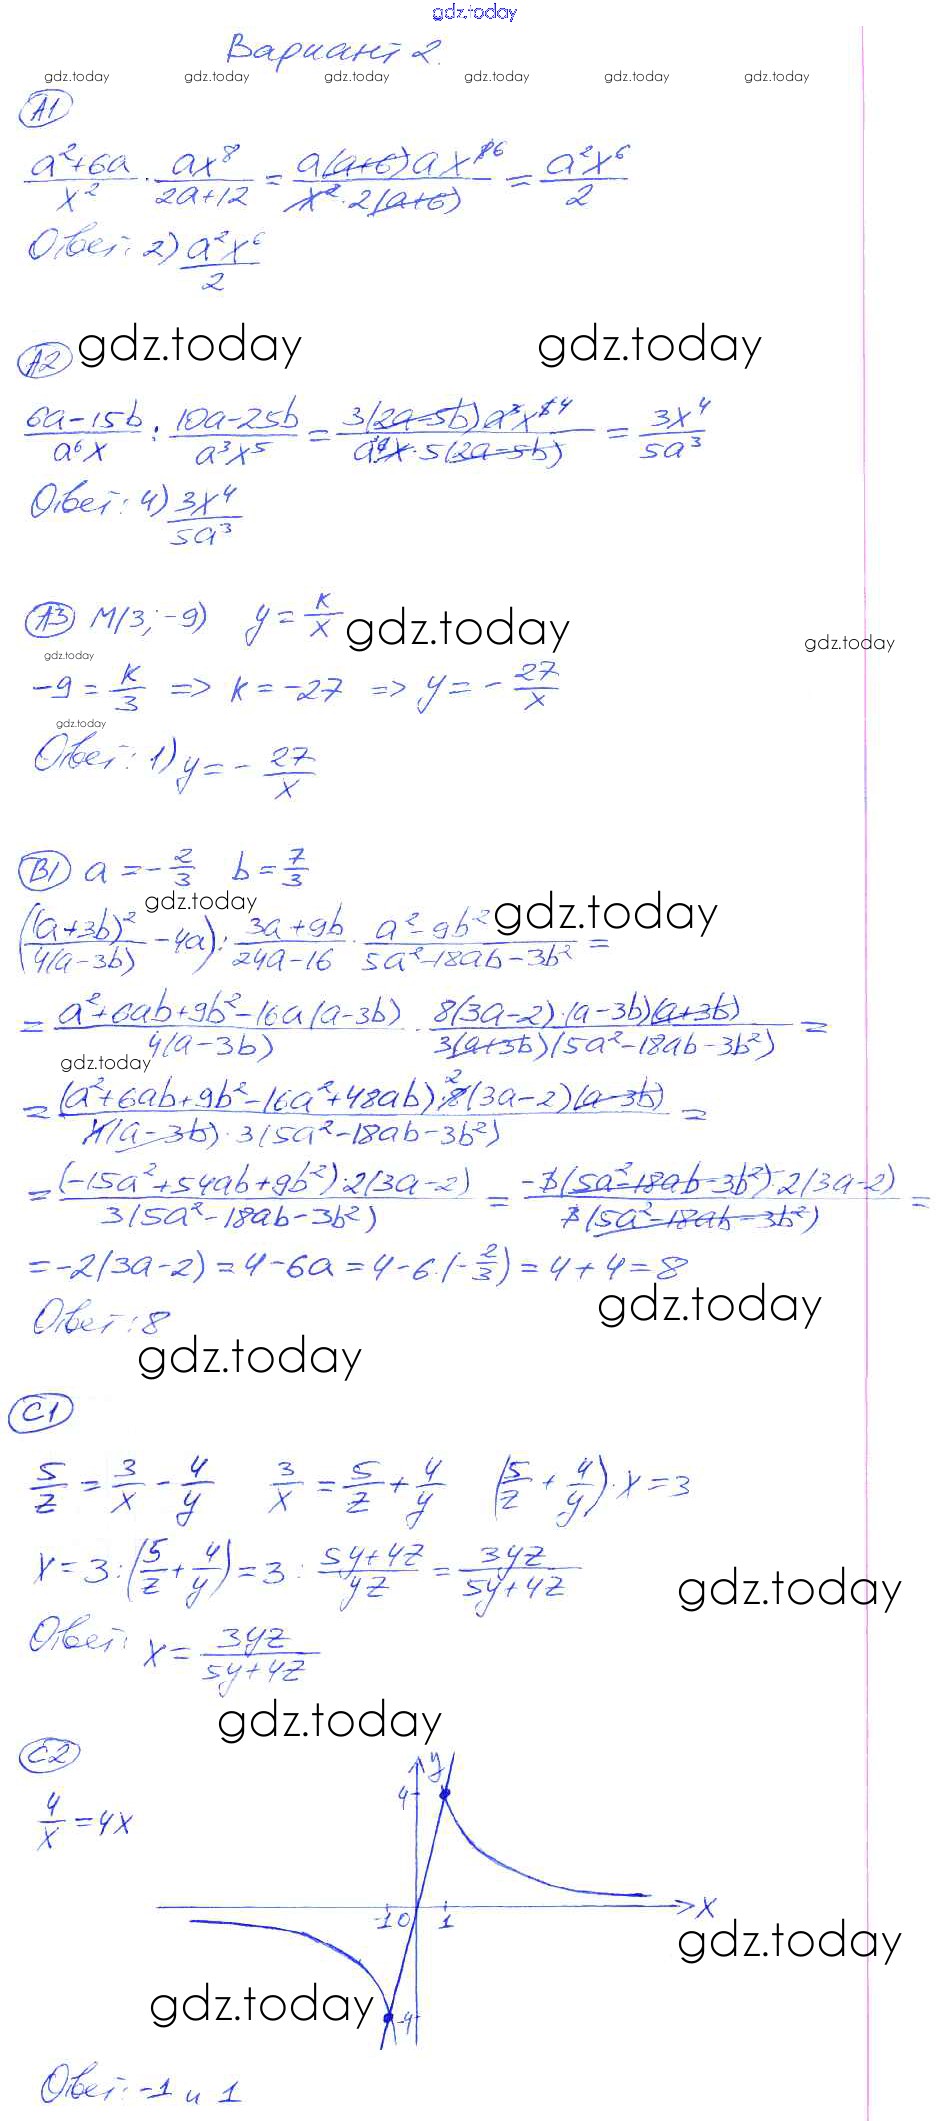 gdz.today
Вариант 2.
gdz.today gdz.today gdz.today gdz.today gdz.today gdz.today
A1
(a²+6a)/x² · ax⁸/(2a+12) = a(a+6)ax⁸ ⁶/(x²·2(a+6)) = a²x⁶/2
Ответ: 2) a²x⁶/2
A2 gdz.today gdz.today
(6a-15b)/(a⁶x) : (10a-25b)/(a³x⁵) = 3(2a-5b)a³x⁵ ⁴/(a⁶ ³x·5(2a-5b)) = 3x⁴/(5a³)
Ответ: 4) 3x⁴/(5a³)
A3 M(3; -9) y = k/x gdz.today
gdz.today
gdz.today
-9 = k/3 => k = -27 => y = -27/x
gdz.today
Ответ: 1) y = -27/x
B1 a = -2/3 b = 7/3
gdz.today gdz.today
((a+3b)²/(4(a-3b)) - 4a) : (3a+9b)/(24a-16) · (a²-9b²)/(5a²-18ab-3b²) =
= (a²+6ab+9b²-16a(a-3b))/(4(a-3b)) · (8(3a-2)·(a-3b)(a+3b))/(3(a+3b)(5a²-18ab-3b²)) =
gdz.today
= ((a²+6ab+9b²-16a²+48ab)·8 ²(3a-2)(a-3b))/(4(a-3b)·3(5a²-18ab-3b²)) =
= ((-15a²+54ab+9b²)·2(3a-2))/(3(5a²-18ab-3b²)) = (-3(5a²-18ab-3b²)·2(3a-2))/(3(5a²-18ab-3b²)) =
= -2(3a-2) = 4-6a = 4-6·(-2/3) = 4+4 = 8
gdz.today
Ответ: 8
gdz.today
C1
5/z = 3/x - 4/y 3/x = 5/z + 4/y (5/z + 4/y)·x = 3
x = 3 : (5/z + 4/y) = 3 : (5y+4z)/(yz) = 3yz/(5y+4z)
gdz.today
Ответ: x = 3yz/(5y+4z)
gdz.today
C2
y
4
4/x = 4x
-1 0 1 x
gdz.today
gdz.today
-4
Ответ: -1 и 1